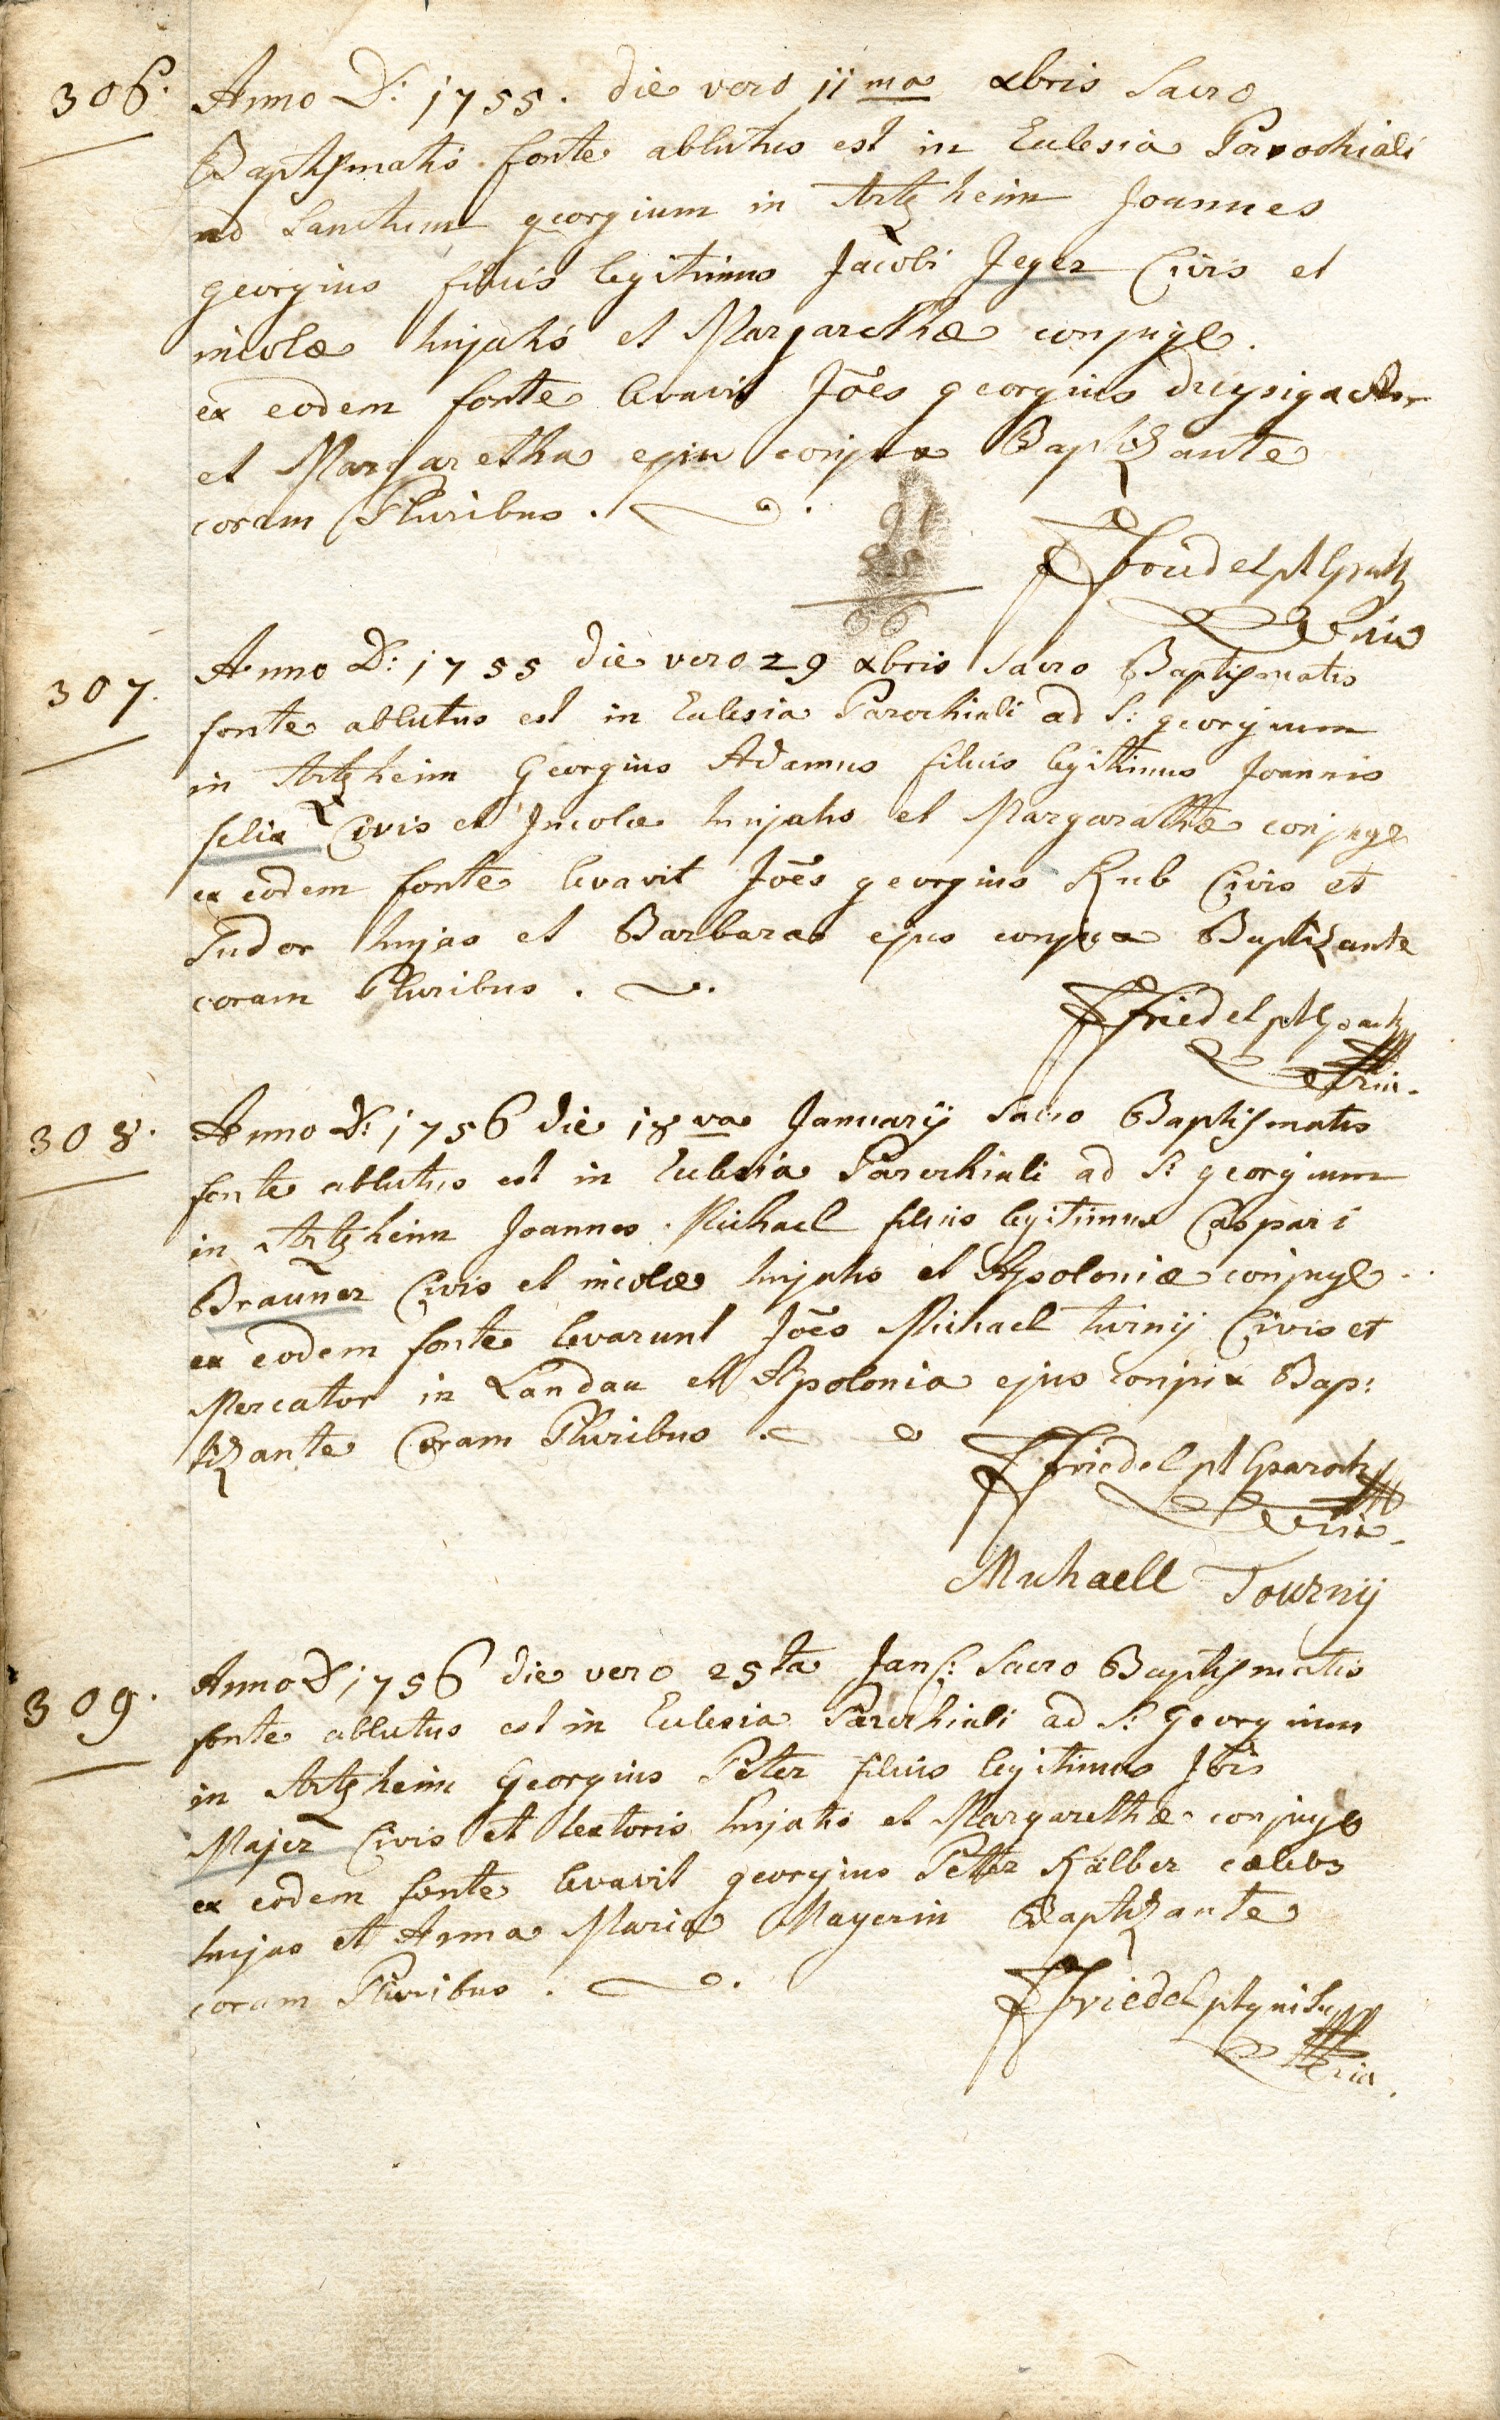 306. Anno D: 1755. die vero 11ma xbris Sacro
Baptismatis fonte ablutus est in Eclesia Parochiali
ad Sanctum georgium in Artzheim Joannes
georgius filius legitimus Jacobi Jeger Civis et
incolæ hujatis et Margarethæ conjuge.
ex eodem fonte levavit Jōes georgius dreysigacker
et Margaretha ejus conjux Baptizante
coram Pluribus.
91
55
36
Friedel pt Par
mia
307. Anno D: 1755 die vero 29 xbris Sacro Baptismatis
fonte ablutus est in Eclesia Parochiali ad S: georgium
in Artzheim Georgius Adamus filius legitimus Joannis
felix Civis et Incolæ hujatis et Margarathæ conjuge
ex eodem fonte levavit Jōes georgius Kub Civis et
Sudor hujas et Barbaræ ejus conjux Baptizante
coram Pluribus.
Friedel pt Paroch
mria.
308. Anno D: 1756 die 18va Januarij Sacro Baptismatis
fonte ablutus est in Eclesia Parochiali ad S: georgium
in Artzheim Joannes Michael filius legitimus Caspari
Brauner Civis et incolæ hujatis et Apoloniæ conjuge.
ex eodem fonte levarunt Jōes Michael turnij Civis et
Mercator in Landau et Apolonia ejus conjux Bap:
tizante Coram Pluribus.
Friedel pt Paroch
mria.
Michaell Tournij
309. Anno D 1756 die vero 25ta Jan: Sacro Baptismatis
fonte ablutus est in Eclesia Parochiali ad S: Georgium
in Artzheim Georgius Peter filius legitimus Jōis
Majer Civis et textoris hujatis et Margarethæ conjuge
ex eodem fonte levavit georgius Peter Kälber cælebs
hujas et Anna Maria Mayerin Baptizante
coram Pluribus.
Friedel pt
mria.